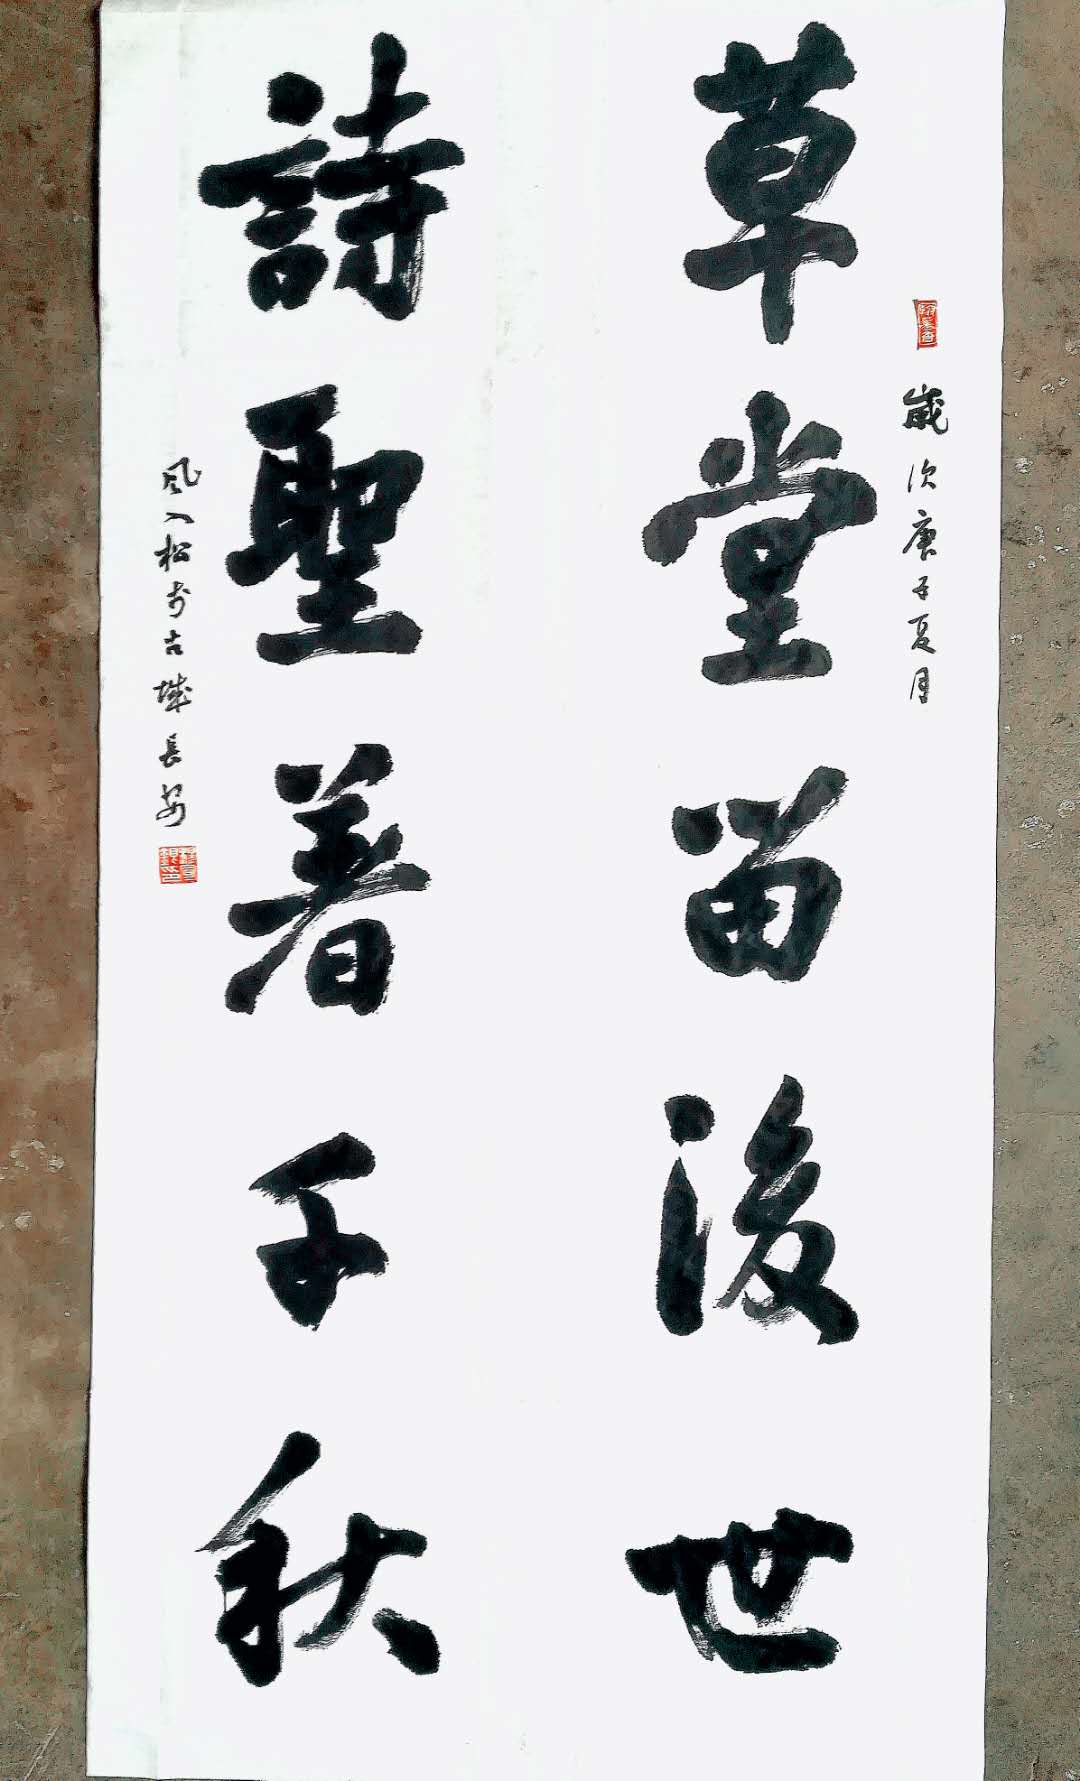 歲次庚子夏月
草堂留後世
詩聖著千秋
風入松於古城長安